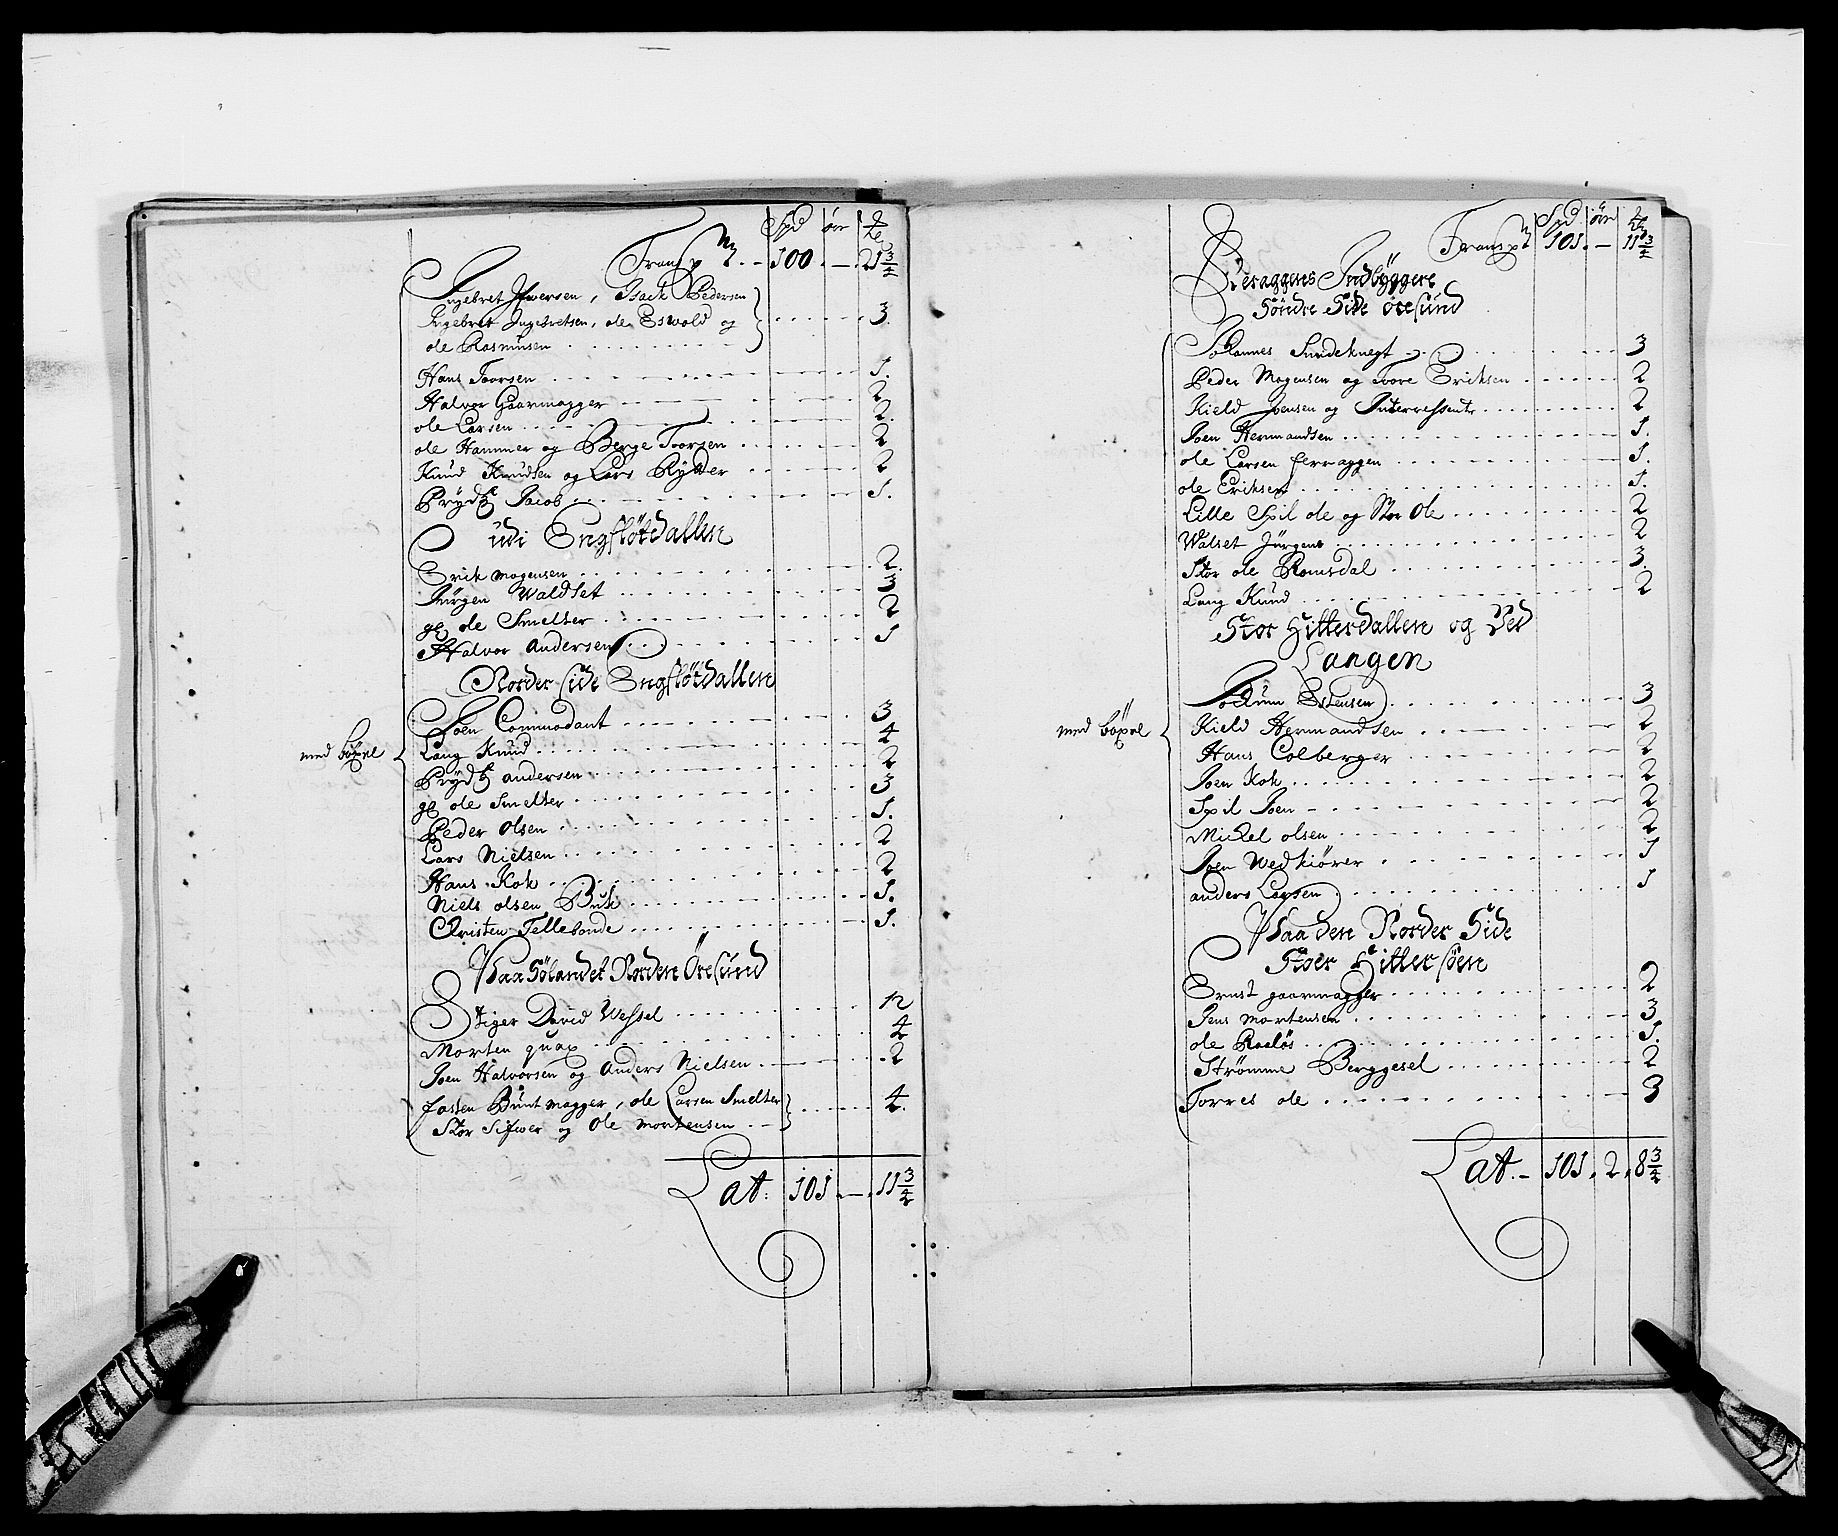 Spd ør
Transpt. 100. — 21 3/4
Ingebret Ifwersen, Isach Pedersen
Ingebret Ingebretsen, ole Eswold og 3
ole Rasmusen
Hans Toorsen 1.
Halvor Gaarmagger 2
ole Larsen 2.
ole Hammer og Berge Toorsen 2
Knud Knudsen og Lars Rytter 2
Prydz Jacob 1.
udi Engslötdallen
Erik Mogensen 2.
Jürgen Waldset 3
gl ole Smelter 2
Halvor Andersen 1
Norder side Engslötdallen
Joen Commodant 3
med böxel
Lang Knud 4
Prydz Andersen 2
gl ole Smelter 3
Peder Olsen 1.
Lars Nielsen 2
Hans Kok 2
Niels olsen Buk 1.
Christen Tellebonde 1.
Paa Sölandet Norden Öresund
Stiger David Wessel 12
Morten quax 4
Joen Halvorsen og Anders Nielsen 2
fasten Buntmagger, ole Larsen Smelter 4.
Stor Sifwer og Ole Mortensen
Lat: 101 — 11 3/4
Spd ør
Transpt 101. — 11 3/4
Feraggens Indbyggere
Söndre Side öresund
Johannes Sundeknegt 3
Peder Mogensen og Tore Eriksen 2
Kield Joensen og Interressentr 2
Joen Hermandsen 1.
ole Larsen ferraggen 1.
ole Eriksen 1.
Lille Spil ole og Stor Ole 2
Walset Jürgens 2
Stor ole Romsdal 3.
Lang Knud 2
Stor Hitterdallen og Ved
Langen
Jochum Estensen 3
med böxel
Kield Hermandsen 2
Hans Colberger 2
Joen Kok 2
Spil Joen 2
Michel olsen 2
Joen Wedkiörer 1
anders Larsen 1
Paa den Norder Side
Stoer Hitter söen
Ernst gaarmagger 2
Jens Mortensen 3
ole Raaløs 1.
Strømme Berggesel 2
Torres ole 3
Lat. 101. 2. 8 3/4